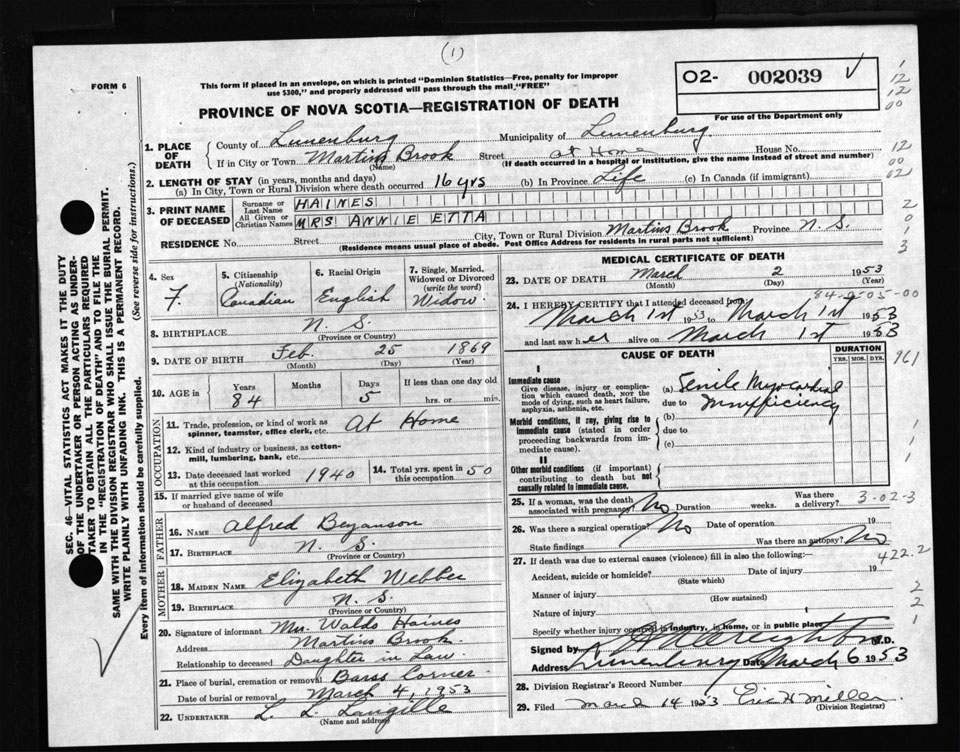 (1)
FORM 6
This form if placed in an envelope, on which is printed "Dominion Statistics—Free, penalty for improper
use $300," and properly addressed will pass through the mail "FREE"
O2- 002039
For use of the Department only
PROVINCE OF NOVA SCOTIA—REGISTRATION OF DEATH
1. PLACE OF DEATH
County of Lunenburg Municipality of Lunenburg
If in City or Town Martins Brook Street at Home House No.
(Name) (If death occurred in a hospital or institution, give the name instead of street and number)
2. LENGTH OF STAY (in years, months and days)
(a) In City, Town or Rural Division where death occurred 16 yrs (b) In Province Life (c) In Canada (if immigrant)
3. PRINT NAME OF DECEASED
Surname or Last Name HAINES
All Given or Christian Names MRS ANNIE ETTA
RESIDENCE No. Street City, Town or Rural Division Martins Brook Province N. S.
(Residence means usual place of abode. Post Office Address for residents in rural parts not sufficient)
4. Sex F.
5. Citizenship (Nationality) Canadian
6. Racial Origin English
7. Single, Married, Widowed or Divorced (write the word) Widow
8. BIRTHPLACE N. S.
(Province or Country)
9. DATE OF BIRTH Feb. 25 1869
(Month) (Day) (Year)
10. AGE in Years 84 Months Days 5 If less than one day old hrs. or min.
OCCUPATION
11. Trade, profession, or kind of work as spinner, teamster, office clerk, etc. At Home
12. Kind of industry or business, as cotton-mill, lumbering, bank, etc.
13. Date deceased last worked at this occupation 1940
14. Total yrs. spent in this occupation 50
15. If married give name of wife or husband of deceased
FATHER
16. NAME Alfred Bezanson
17. BIRTHPLACE N. S.
(Province or Country)
MOTHER
18. MAIDEN NAME Elizabeth Webber
19. BIRTHPLACE N. S.
(Province or Country)
20. Signature of informant Mrs. Waldo Haines
Address Martins Brook
Relationship to deceased Daughter in Law
21. Place of burial, cremation or removal Barss Corner
Date of burial or removal March 4, 1953
22. UNDERTAKER L. L. Langille
(Name and address)
MEDICAL CERTIFICATE OF DEATH
23. DATE OF DEATH March 2 1953
(Month) (Day) (Year)
84-0-05-00
24. I HEREBY CERTIFY that I attended deceased from
March 1st 1953 to March 1st 1953
and last saw her alive on March 1st 1953
CAUSE OF DEATH
DURATION
YRS. MOS. DYS.
I
Immediate cause
Give disease, injury or complication which caused death, NOT the mode of dying, such as heart failure, asphyxia, asthenia, etc.
(a) Senile Myocardial
due to Insufficiency
Morbid conditions, if any, giving rise to immediate cause (stated in order proceeding backwards from immediate cause).
(b)
due to
(c)
II
Other morbid conditions (if important) contributing to death but not causally related to immediate cause.
25. If a woman, was the death associated with pregnancy? No Duration weeks. Was there a delivery? 3-02-3
26. Was there a surgical operation? No Date of operation 19
State findings Was there an autopsy? No
27. If death was due to external causes (violence) fill in also the following:—
422.2
Accident, suicide or homicide? Date of injury 19
(State which)
Manner of injury
(How sustained)
Nature of injury
Specify whether injury occurred in industry, in home, or in public place
Signed by Creighton M.D.
Address Lunenburg Date March 6 1953
28. Division Registrar's Record Number
29. Filed March 14 1953 Eric H Miller
(Division Registrar)
SEC. 46—VITAL STATISTICS ACT MAKES IT THE DUTY
OF THE UNDERTAKER OR PERSON ACTING AS UNDER-
TAKER TO OBTAIN ALL THE PARTICULARS REQUIRED
IN THE "REGISTRATION OF DEATH" AND TO FILE THE
SAME WITH THE DIVISION REGISTRAR WHO SHALL ISSUE THE BURIAL PERMIT.
WRITE PLAINLY WITH UNFADING INK. THIS IS A PERMANENT RECORD.
(See reverse side for instructions.)
Every item of information should be carefully supplied.
1
12
12
00
12
00
02
2
0
1
3
961
1
1
1
2
2
1